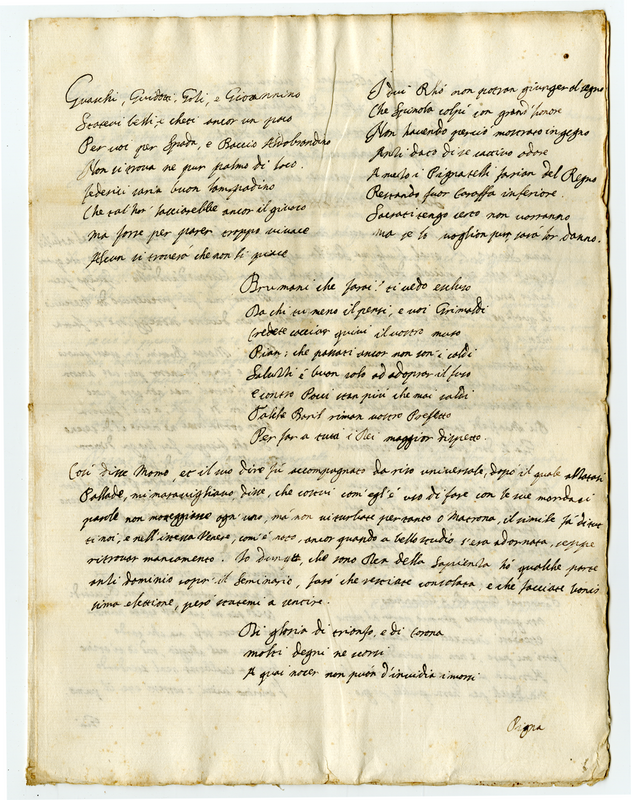 Guaschi, Guidotti, Foli, e Giovannino
Statevi lesti, e cheti ancor un poco
Per voi per Spada, e Baccio Aldobrandino
Non si trova ne pur palmo di loco.
Federici saria buon
Che tal'hor ancor il gioco
ma forse per parer troppo vivace
Alcun si troverà che non li piace
I dui Rhò non potran giunger al segno
Che Spinola colpì con grand'honore
Non havendo perciò mostrato ingegno
Anzi dato di se cattivo odore
A mezo i Pignatelli sarian del Regno
Restando fuor Caraffa inferiore.
Sacrati tengo certo non vorranno
ma se lo voglion pur sarà lor danno.
Brumani che farai? ti vedo escluso
Da chi tu meno il pensi, e voi Grimaldi
Credete cacciar quivi il vostro muso
Pian; che passati ancor non son'i caldi
Saluzzi è buon solo ad adoprar il fuso
E contro stan più che mai saldi
Baril riman vostro Prefetto
Per far a tutti i Rei maggior dispetto.
Così disse Momo, et il suo dire fù accompagnato da riso universale, dopò il quale alzatasi
Pallade, mi maravigliavo, disse, che costui com'egl'è uso di fare con le sue mordaci
parole non ogn'uno, mà non vi turbate pertanto o Macrona, il simile fà di tut
ti noi, e nell'istessa Venere, com'è noto, ancor quando a bello studio s'era adornata, seppe
ritrovar mancamento. Io dunque, che sono Dea della Sapienza hò qualche parte
anzi dominio sopr'il Seminario, farò che restiate consolata, e che facciate bonis
sima elettione, però statemi a sentire.
Di gloria di trionfo, e di corona
molti degni ne scorsi
A quai nocer non puon d'invidia i morsi
Pigna